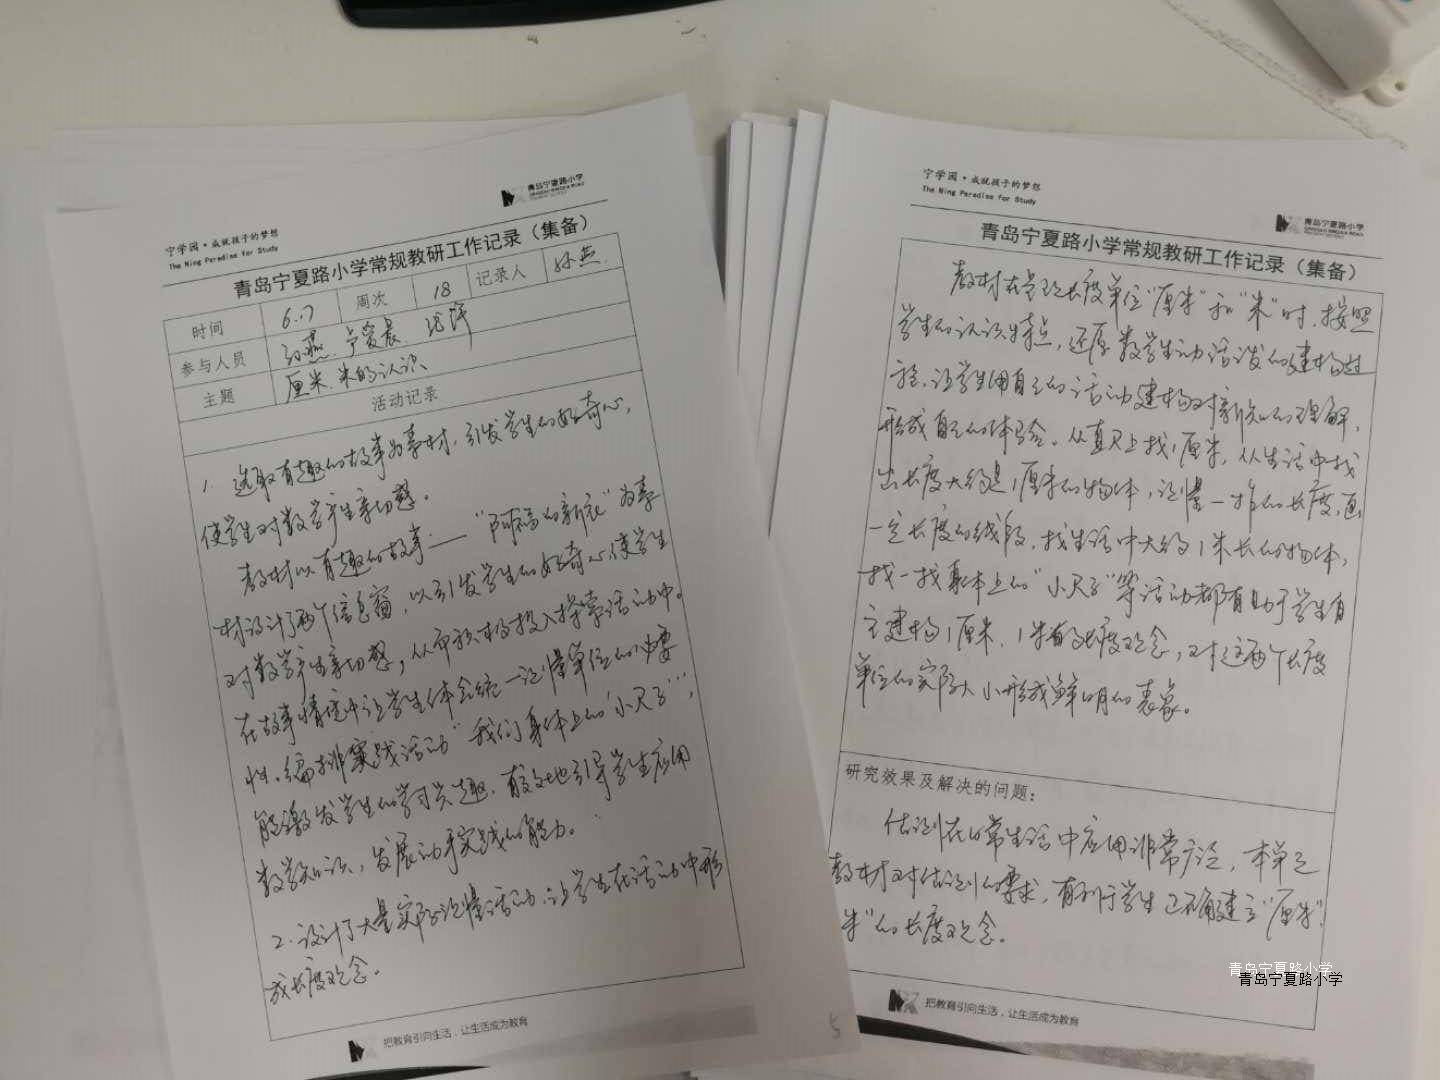 宁学园·成就孩子的梦想
The Ning Paradise for Study
青岛宁夏路小学
青岛宁夏路小学常规教研工作记录（集备）
时间 6.7 周次 18 记录人 孙燕
参与人员 孙燕、卢爱晨、
主题 厘米、米的认识
活动记录
1. 选取有趣的故事为素材，引发学生的好奇心，
使学生对数学产生亲切感。
教材以有趣的故事——“阿福的新衣”为素
材设计了两个信息窗，以引发学生的好奇心，使学生
对数学产生亲切感，从而积极投入探索活动中。
在故事情境中让学生体会统一测量单位的必要
性。编排实践活动“我们身体上的‘小尺子’”，
能激发学生的学习兴趣，有效地引导学生应用
数学知识，发展动手实践的能力。
2. 设计了大量实际测量活动，让学生在活动中形
成长度观念。
把教育引向生活，让生活成为教育
5
宁学园·成就孩子的梦想
The Ning Paradise for Study
青岛宁夏路小学
青岛宁夏路小学常规教研工作记录（集备）
教材在呈现长度单位“厘米”和“米”时，按照
学生的认识特点，还原数学生动活泼的建构过
程，让学生用自己的活动建构对新知的理解，
形成自己的体验。从直尺上找1厘米，从生活中找
出长度大约是1厘米的物体，测量一拃的长度，画
一定长度的线段，找生活中大约1米长的物体，
找一找身体上的“小尺子”等活动都有助于学生自
主建构1厘米、1米的长度观念，对这两个长度
单位的实际大小形成鲜明的表象。
研究效果及解决的问题：
估测在日常生活中应用非常广泛，本单元
教材对估测的要求，有利于学生正确建立“厘米”、
米”的长度观念。
把教育引向生活，让生活成为教育
青岛宁夏路小学
青岛宁夏路小学